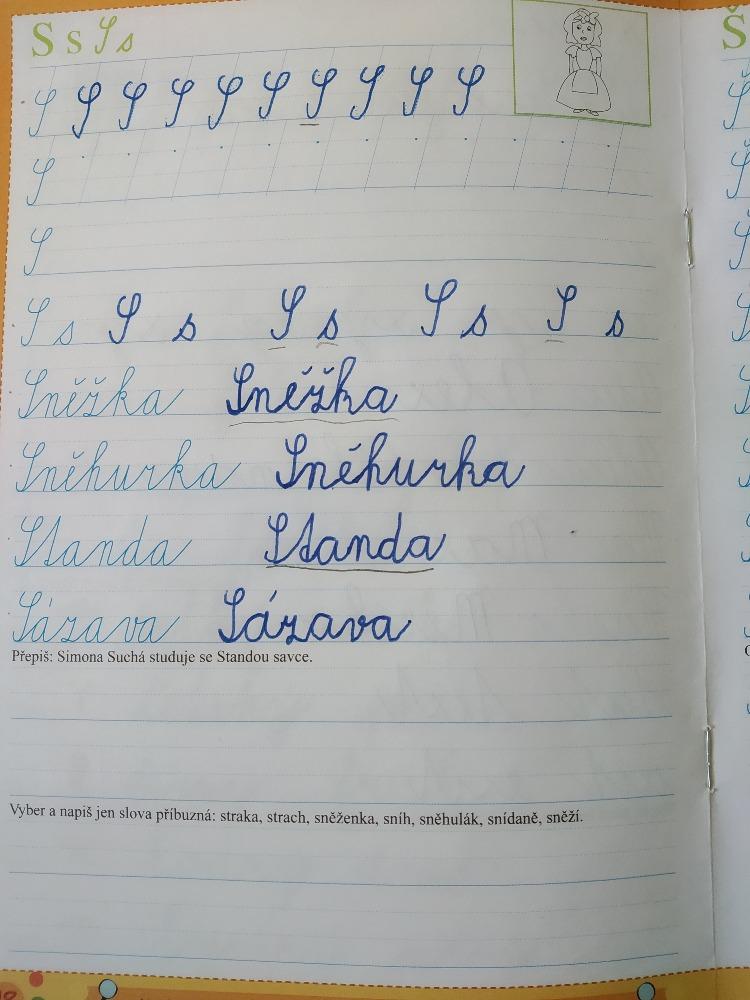 S s S s
S S S S S S S S S S
S
S
S s S s S s S s S s
Sněžka Sněžka
Sněhurka Sněhurka
Standa Standa
Sázava Sázava
Přepiš: Simona Suchá studuje se Standou savce.
Vyber a napiš jen slova příbuzná: straka, strach, sněženka, sníh, sněhulák, snídaně, sněží.